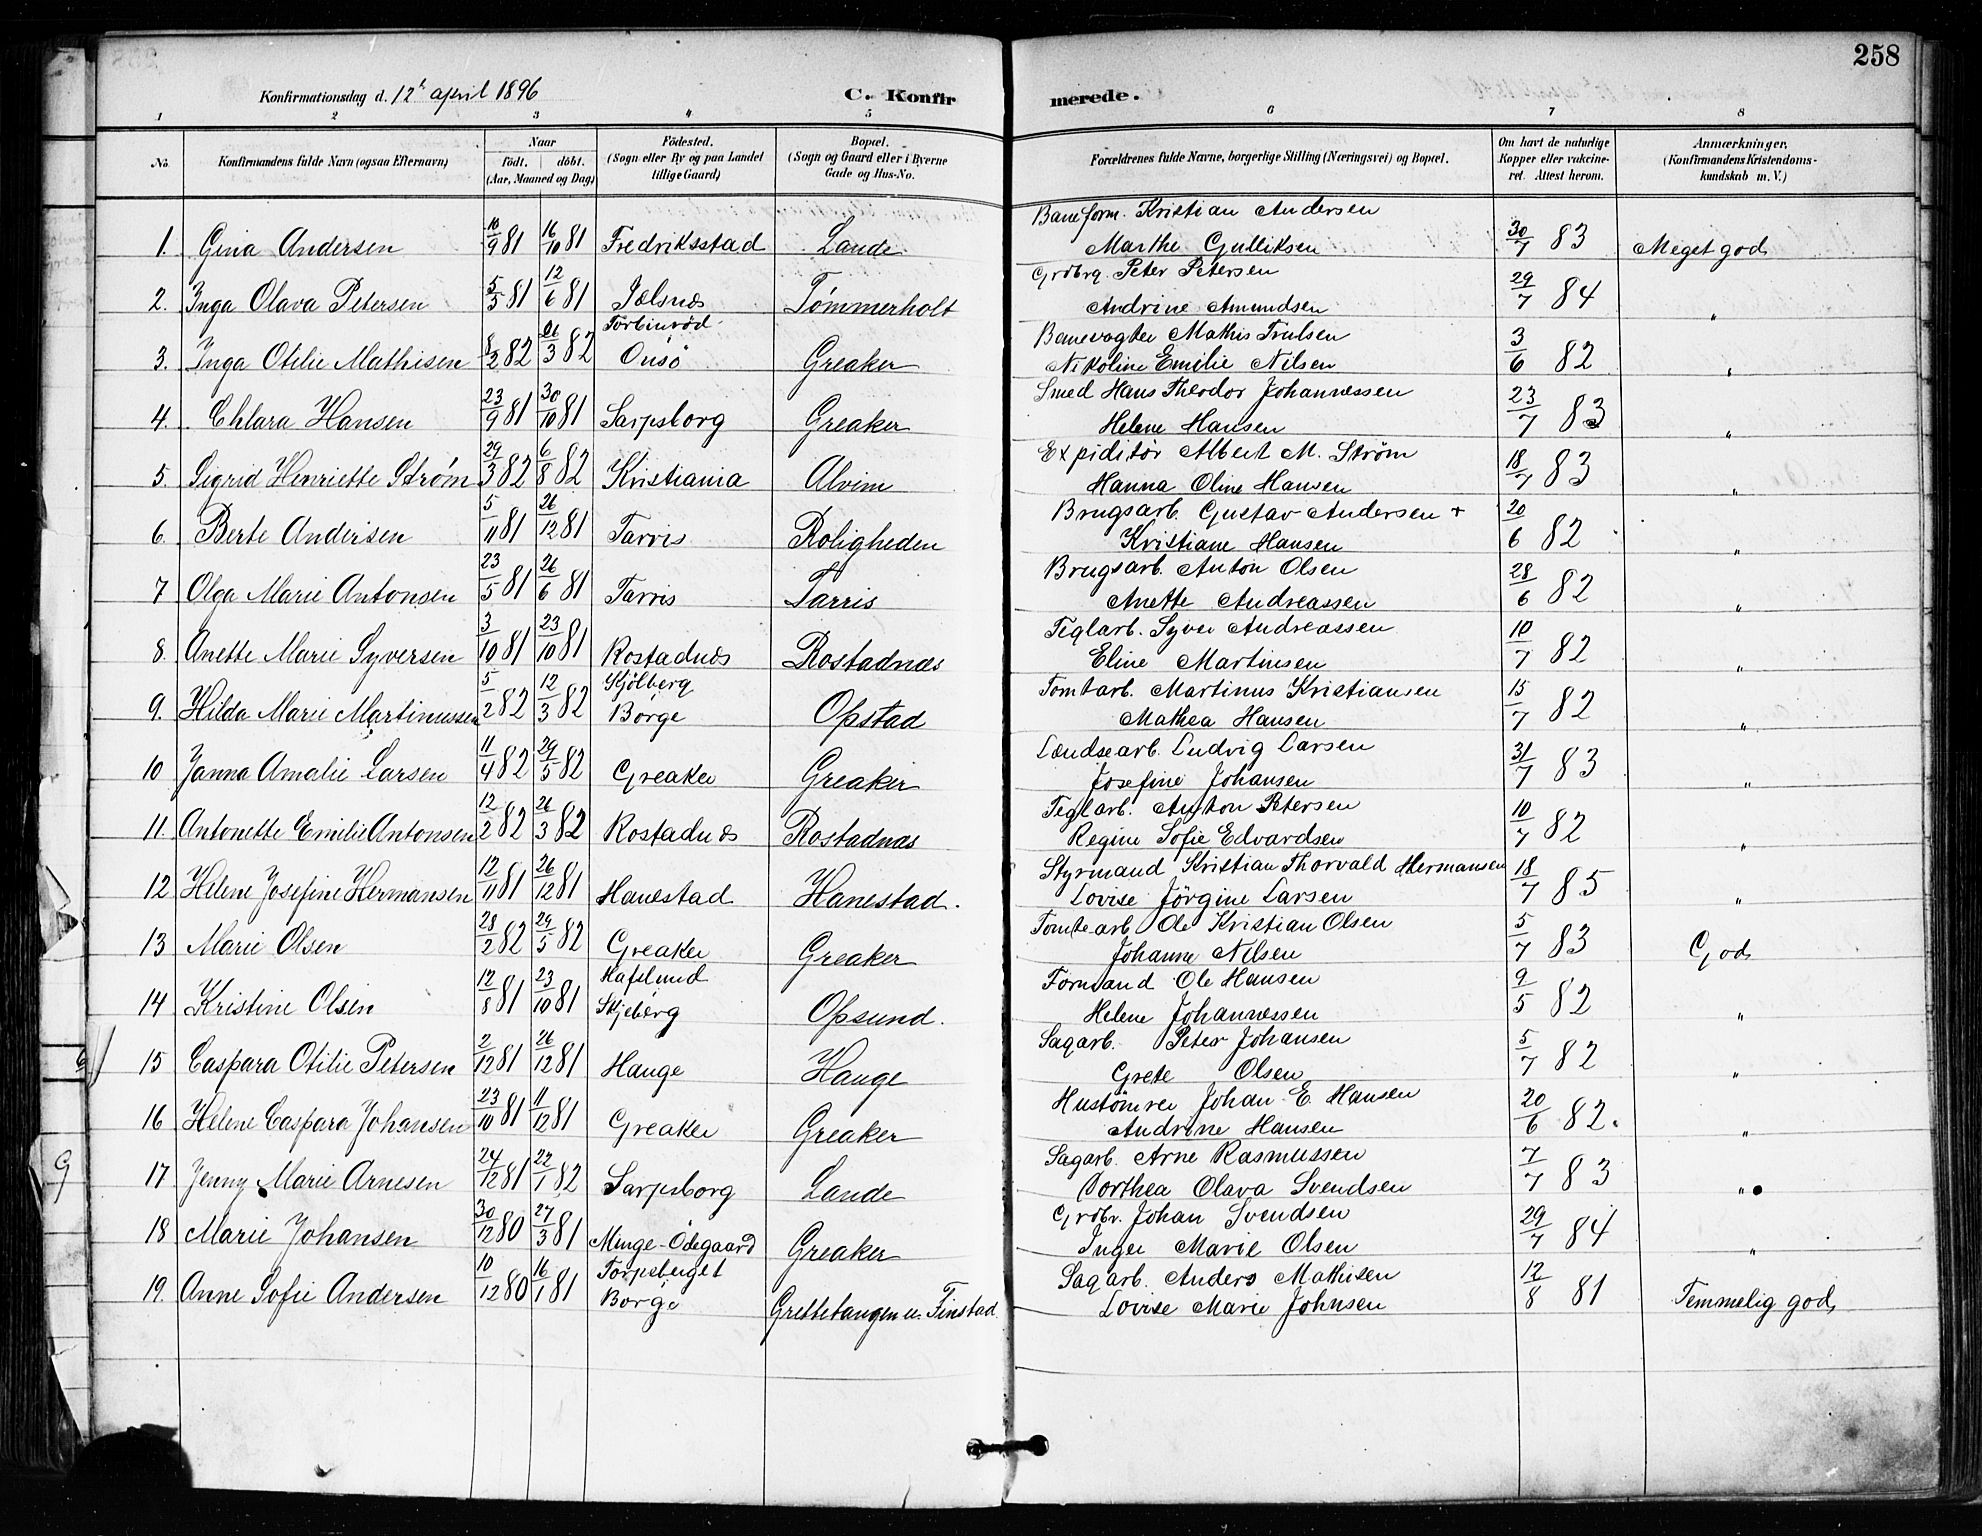 258
Konfirmationsdag d. 12te april 1896 C. Konfirmerede.
1 2 3 4 5 6 7 8
No. Konfirmandens fulde Navn (ogsaa Efternavn) Naar født. døbt. (Aar, Maaned og Dag) Fødested. (Sogn eller By og paa Landet tillige Gaard) Bopæl. (Sogn og Gaard eller i Byerne Gade og Hus-No. Forældrenes fulde Navne, borgerlige Stilling (Næringsvei) og Bopæl. Om havt de naturlige Kopper eller vaccineret. Attest herom. Anmærkninger. (Konfirmandens Kristendomskundskab m. V.)
1. Gina Andersen 10/9 81 16/10 81 Fredriksstad Lande Baneform. Kristian Andersen
Marthe Gulliksen 30/7 83 Meget god
2. Inga Olava Petersen 5/5 81 12/6 81 Jelsnes Tømmerholt Grdbrg. Peter Petersen
Andrine Amundsen 29/7 84 "
3. Inga Otilie Mathisen 8/2 82 26/3 82 Torbinrød Onsö Greaker Banevogter Mathis Trulsen
Nikoline Emilie Nilsen 3/6 82 "
4. Chlara Hansen 23/9 81 30/10 81 Sarpsborg Greaker Smed Hans Theodor Johannessen
Helene Hansen 23/7 83 "
5. Sigrid Henriette Strøm 29/3 82 6/8 82 Kristiania Alvim Expiditör Albert M. Strøm
Hanna Oline Hansen 18/7 83 "
6. Berte Andersen 5/11 81 26/12 81 Tarris Roligheden Brugsarb. Gustav Andersen +
Kristiane Hansen 20/6 82 "
7 Olga Marie Antonsen 23/5 81 26/6 81 Tarris Tarris Brugsarb. Anton Olsen
Anette Andreassen 28/6 82 "
8. Anette Marie Syversen 3/10 81 23/10 81 Rostadnes Rostadnæs Teglarb. Syver Andreassen
Eline Martinsen 10/7 82 "
9. Hilda Marie Martinussen 5/2 82 12/3 82 Kjölberg Borge Opstad Tomtarb. Martinus Kristiansen
Mathea Hansen 15/7 82 "
10 Janna Amalie Larsen 11/4 82 29/5 82 Greaker Greaker Lændsearb. Ludvig Larsen
Josefine Johansen 31/7 83 "
11. Antonette Emilie Antonsen 12/2 82 26/3 82 Rostadnes Rostadnæs Teglarb. Anton Petersen
Regine Sofie Edvardsen 10/7 82 "
12 Helene Josefine Hermansen 12/11 81 26/12 81 Hanestad Hanestad. Styrmand Kristian Thorvald Hermansen
Lovise Jörgine Larsen 18/7 85 "
13 Marie Olsen 28/2 82 29/5 82 Greaker Greaker Tomtearb Ole Kristian Olsen
Johanne Nilsen 5/7 83 God
14 Kristine Olsen 12/8 81 23/10 81 Hafslund Skjeberg Opsund. Formand Ole Hansen
Helene Johannessen 9/5 82 "
15 Caspara Otilie Petersen 2/12 81 26/12 81 Hauge Hauge Sagarb. Peter Johansen
Grete Olsen 5/7 82 "
16 Helene Caspara Johansen 23/10 81 11/12 81 Greaker Greaker Hustömrer Johan E. Hansen
Andrine Hansen 20/6 82. "
17 Jenny Marie Arnesen 24/12 81 22/1 82 Sarpsborg Lande Sagarb. Arne Rasmussen
Dorthea Olava Svendsen 7/7 83 "
18 Marie Johansen 30/12 80 27/3 81 Minge-Ødegaard Greaker Grdbr. Johan Svendsen
Inger Marie Olsen 29/7 84 "
19. Anne Sofie Andersen 10/12 80 16/1 81 Torpsberget Borge Grettetangen u. Finstad Sagarb. Anders Mathisen
Lovise Marie Johnsen 12/8 81 Temmelig god,